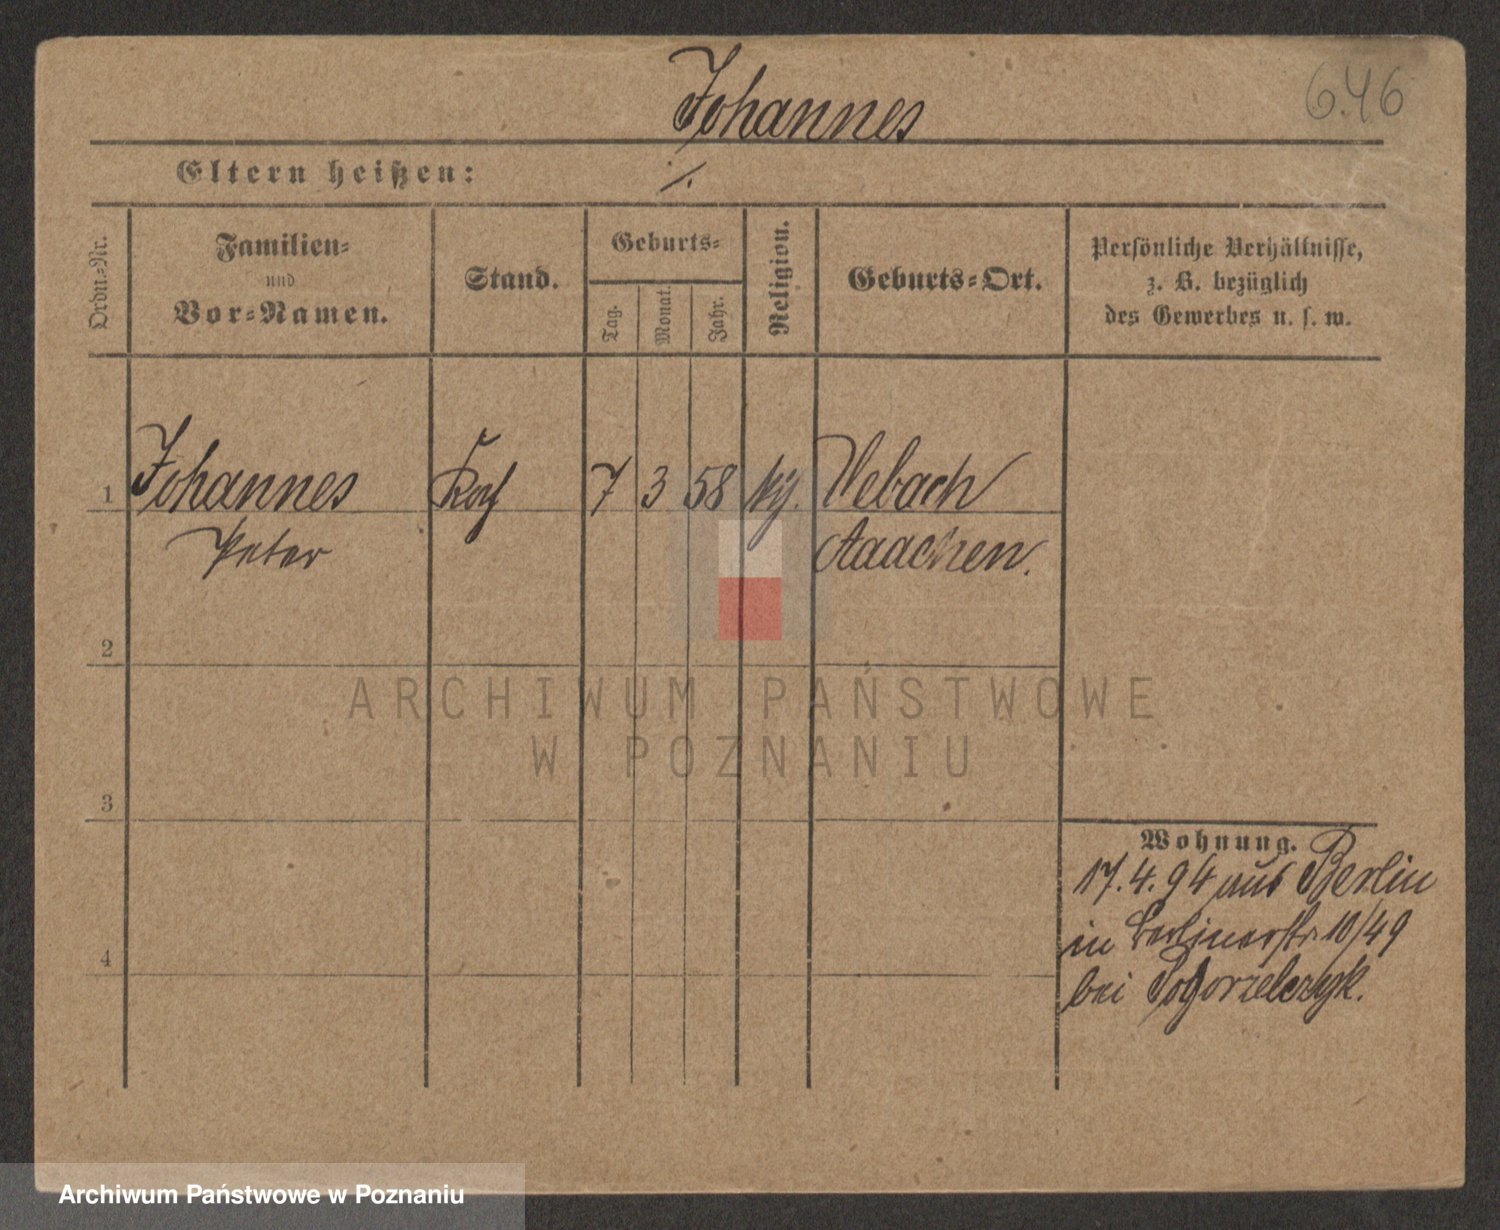 Johannes
6.46
Eltern heißen: ./.
Ordn.=Nr.
Familien=
und
Vor=Namen.
Stand.
Geburts=
Tag.
Monat.
Jahr.
Religion.
Geburts=Ort.
Persönliche Verhältnisse,
z. B. bezüglich
des Gewerbes u. s. w.
1 Johannes Koch 7 3 58
Peter Aaachen.
2
ARCHIWUM PAŃSTWOWE
W POZNANIU
3
4
Wohnung.
17.4.94 aus Berlin
in Berlinerstr 10/49
bei Pogorzelczyk.
Archiwum Państwowe w Poznaniu